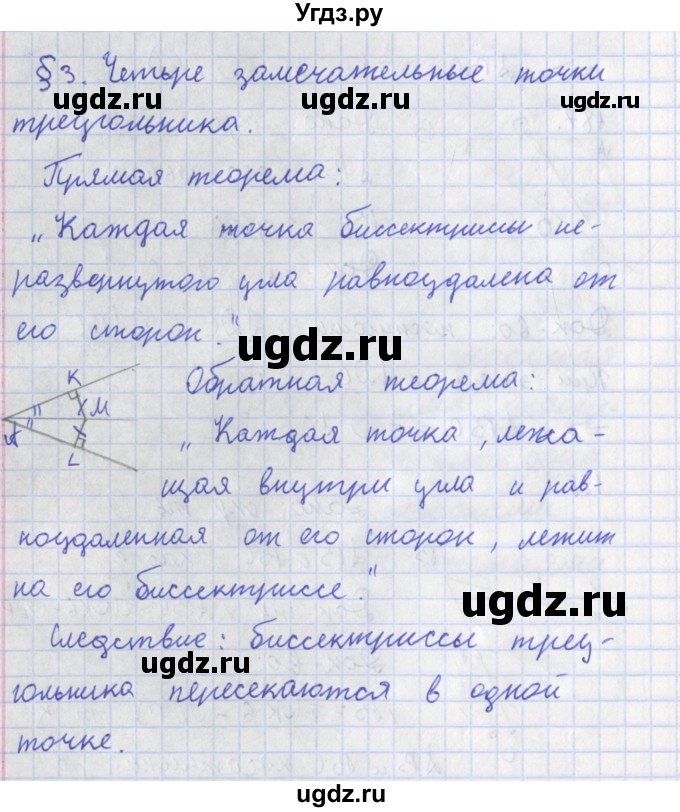 Угдз.ру
§3. Четыре замечательные точки
ugdz.ru ugdz.ru ugdz.ru
треугольника.
Прямая теорема:
„Каждая точка биссектрисы не-
развернутого угла равноудалена от
его сторон."
ugdz.ru
K
Обратная теорема:
M
A
„Каждая точка, лежа-
L
щая внутри угла и рав-
ноудаленная от его сторон, лежит
на его биссектриссе."
ugdz.ru
Следствие: биссектриссы треу-
ugdz.ru
гольника пересекаются в одной
точке.
ugdz.ru ugdz.ru ugdz.ru